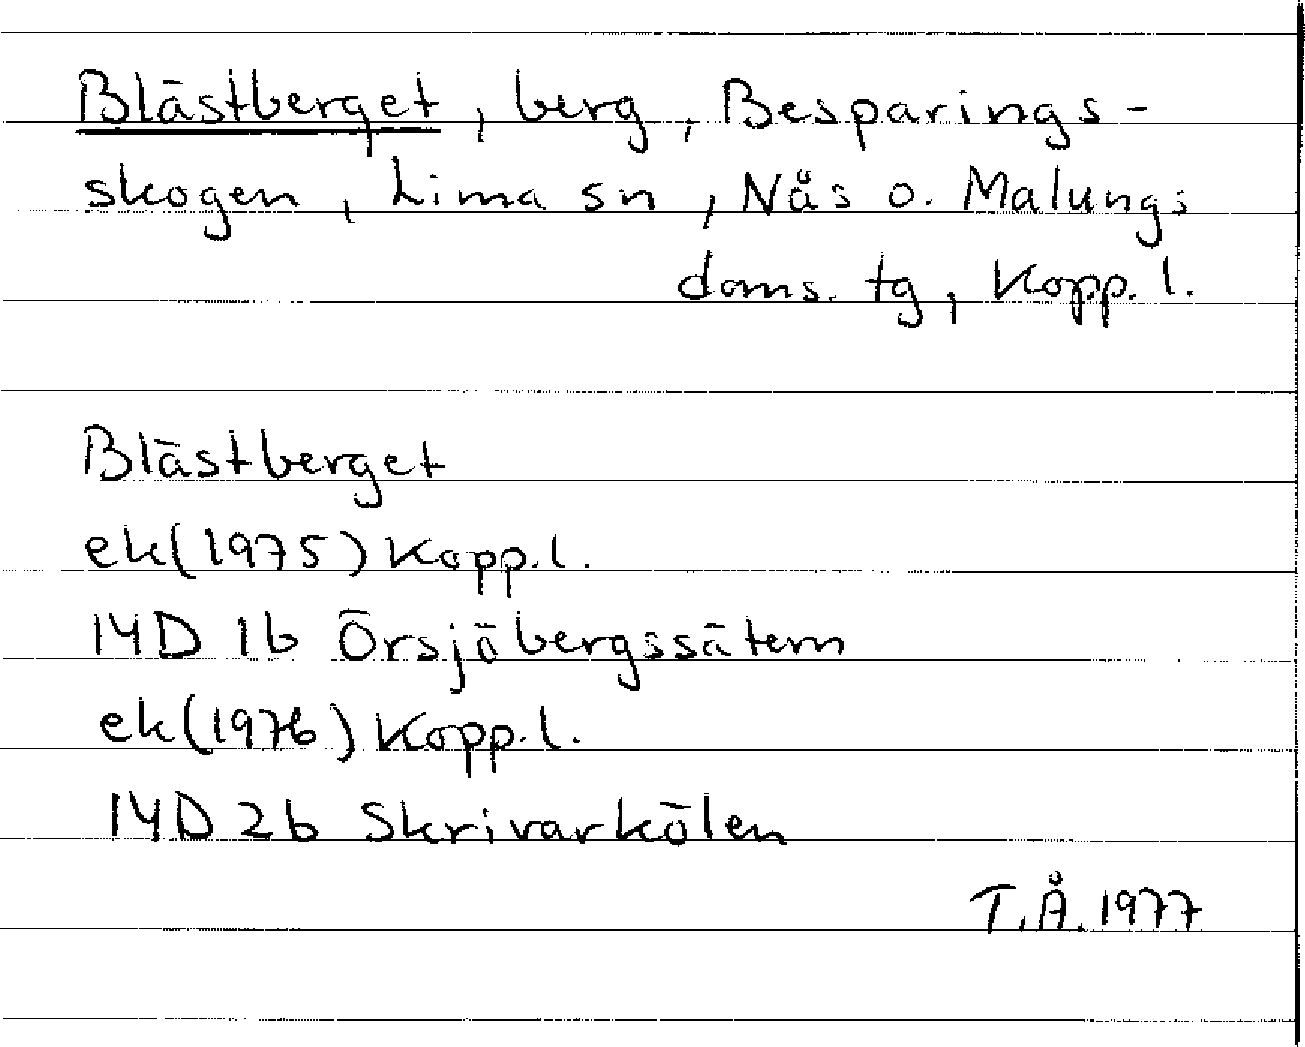 Blästberget, berg, Besparings-
skogen, Lima sn, Nås o. Malungs
doms. tg, Kopp. l.
Blästberget
ek(1975) Kopp. l.
14D 1b Örsjöbergssätern
ek(1976) Kopp. l.
14D 2b Skrivarkölen
T.Å. 1977